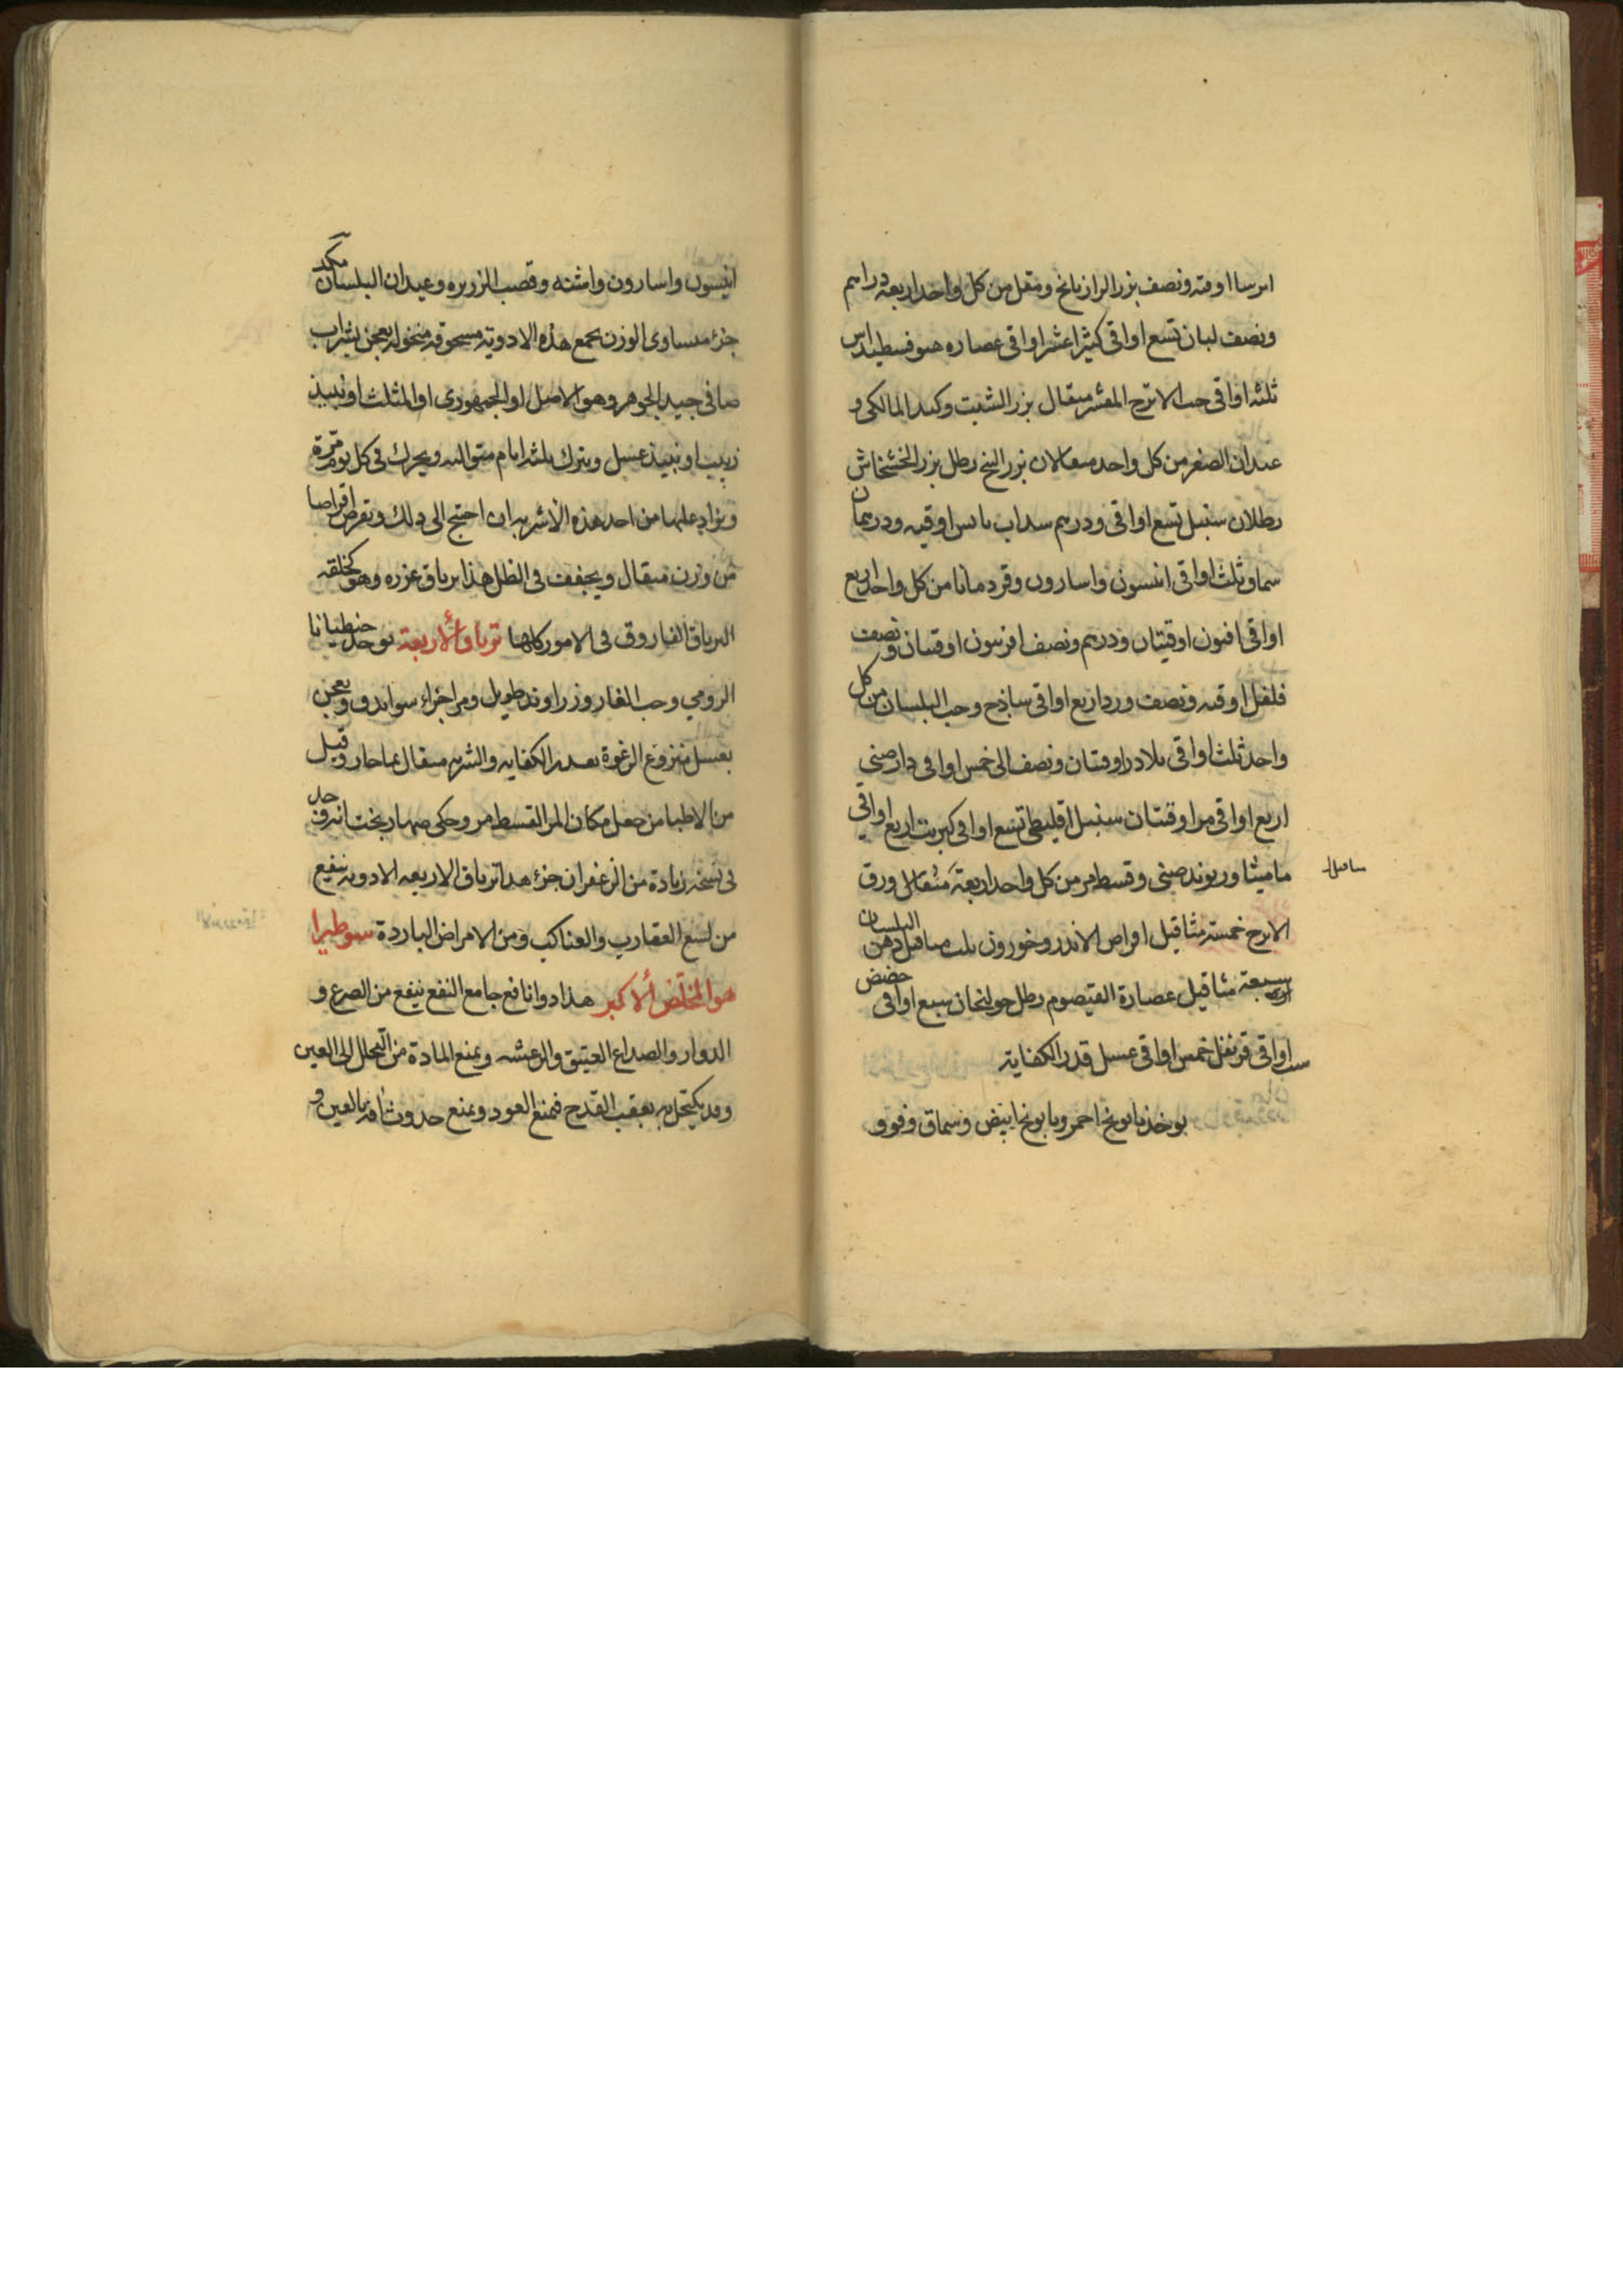 ايرسا اوقيه ونصف بزر الرازيانج ومقل من كل واحد اربعة دراهم
ونصف لبان تسع اواقى كثيرا عشر اواقى عصاره هيوفسطيداس
ثلثه اواقى حب الاترج المقشر مثقال بزر الشبت وكبد المالكى و
عيدان الصفر من كل واحد مثقالان بزر البنج رطل بزر الخشخاش
رطلان سنبل تسع اواقى ودرهم سداب يابس اوقيه ودرهمان
سماو ثلث اواقى انيسون واسارون وقردمانا من كل واحد اربع
اواقى افيون اوقيتان ودرهم ونصف افربيون اوقيتان ونصف
فلفل اوقيه ونصف ورد اربع اواقى ساذج وحب البلسان من كل
واحد ثلث اواقى بلادر اوقيتان ونصف الى خمس اواقى دارصينى
اربع اواقى مر اوقيتان سنبل اقليطى تسع اواقى كبريت اربع اواقي
ماميثا وريوند صينى وقسط مر من كل واحد اربعة مثقال ورق
الاترج خمسة مثاقيل اقراص الاندروخورون ثلث مثاقيل دهن البلسان
سبعة مثاقيل عصارة القيصوم رطل خولنجان سبع اواقى حضض
ست اواقى قرنفل خمس اواقى عسل قدر الكفاية
يوخذ بابونج احمر وبابونج ابيض وسماق وفوو
انيسون واسارون واشنه وقصب الزريره وعيدان البلسان مكد
جزء متساوى الوزن يجمع هذه الادوية مسحوقه منخوله يعجن بشراب
صافى جيد الجوهر وهو الاصل او الجمهورى او المثلث او نبيذ
زبيب او نبيذ عسل ويترك ثلثه ايام متواليه ويحرك فى كل يوم مرة
ويزاد عليها من احد هذه الاشربه ان احتيج الى ذلك ويقرص اقراصا
من وزن مثقال ويجفف فى الظل هذا ترياق عزره وهو كخلقه
الترياق الفاروق فى الامور كلها ترياق الاربعة يوخذ جنطيانا
الرومي وحب الغار وزراوند طويل ومر اجزاء سوا يدق ويعجن
بعسل منزوع الرغوة بقدر الكفايه والشربه مثقال بما حار وقيل
من الاطبا من جعل مكان المر القسط مر وحكى صهاربخت انه وجد
فى نسخه زيادة من الزعفران جزء هذا ترياق الاربعه الادويه ينفع
من لسع العقارب والعناكب ومن الامراض الباردة سوطيرا
هو المخلص الاكبر هذا دوا نافع جامع النفع ينفع من الصرع و
الدوار والصداع العتيق والرعشه ويمنع المادة من التحلل الى العين
وقد يكتحل به بعقب القدح فيمنع العود ويمنع حدوث افه بالعين و